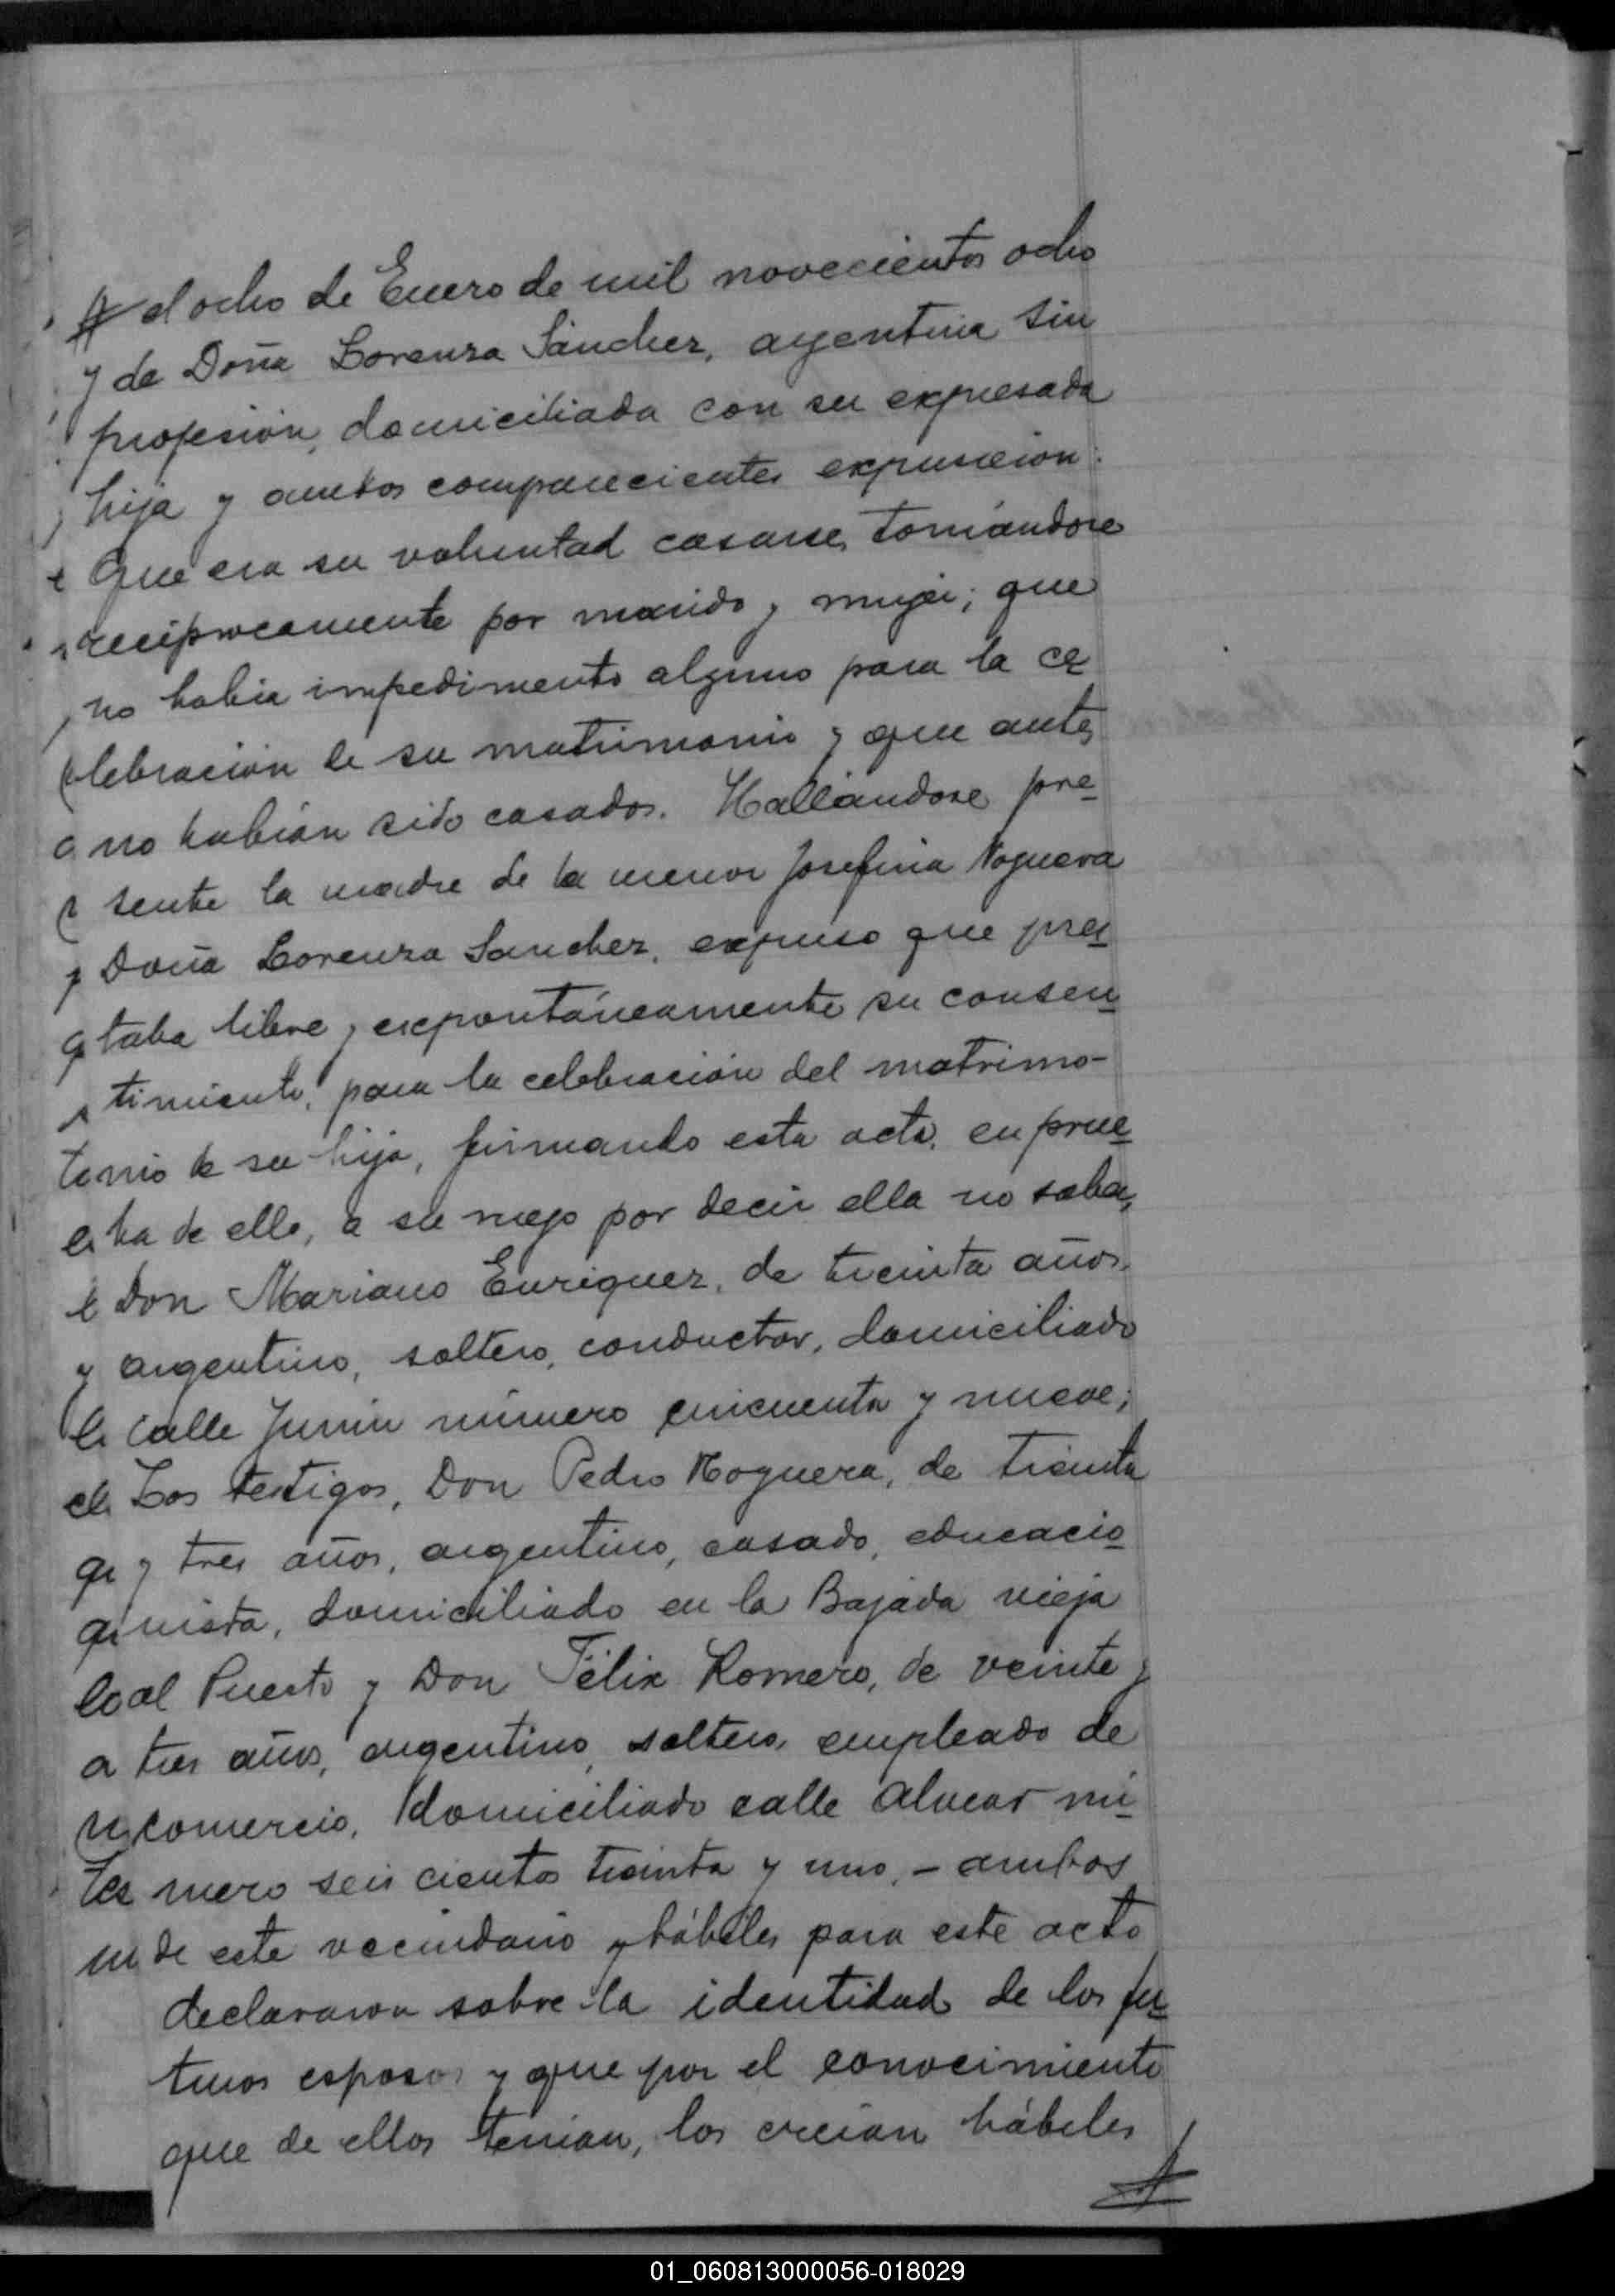 # el ocho de Enero de mil novecientos ocho
y de Doña Lorenza Sánchez, argentina sin
profesión, domiciliada con su expresada
hija y ambos comparecientes expusieron:
Que era su voluntad casarse, tomándose
recíprocamente por marido y mujer; que
no habia impedimento alguno para la ce
lebración de su matrimonio y que antes
no habían sido casados. Hallándose pre
sente la madre de la menor Josefina Noguera
Doña Lorenza Sanchez, expuso que pres
taba libre y expontáneamente su consen
timiento, para la celebración del matrimo-
nio de su hija, firmando esta acta, en prue
ba de ello, a su ruego por decir ella no saber,
Don Mariano Enriquez, de treinta años,
argentino, soltero, conductor, domiciliado
calle Junin número cincuenta y nueve;
Los testigos, Don Pedro Noguera, de treinta
y tres años, argentino, casado, educacio
nista, domiciliado en la Bajada vieja
al Puerto y Don Félix Romero, de veinte y
tres años, argentino, soltero, empleado de
comercio, domiciliado calle Alvear nú
mero seis cientos treinta y uno, - ambos
de este vecindario y hábiles para este acto
declararon sobre la identidad de los fu
turos esposos y que por el conocimiento
que de ellos tenían, los creían hábiles
01_060813000056-018029